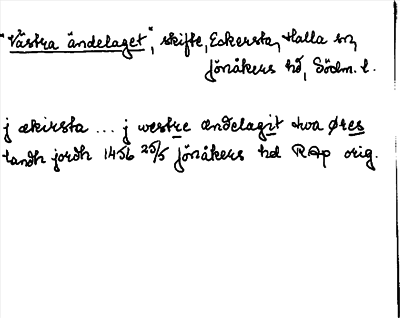 "Västra ändelaget", skifte, Eckersta, Halla sn,
Jönåkers hd, Södm. l.
j ækirsta ... j westre ændelagit twa øres
landh jordh 1456 25/5 Jönåkers hd RAp orig.